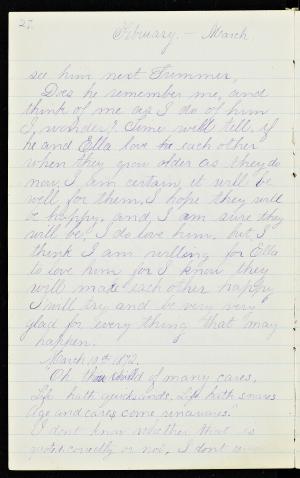 27.
February. - March.
see him next Summer,
Does he remember me, and
think of me as I do of him
I, wonder? Time will tell. if
he and Ella love he each other
when they grow older as they do
now, I am certain it will be
well for them. I hope they will
be happy. and, I am sure they
will be. I do love him. but I
think I am willing for Ella
to love him for I know they
will make each other happy
I will try and be very very
glad for every thing that may
happen.
March 10th 1872.
"Oh thou child of many cares,
Life hath quicksands, Life hath snares
Age and cares come unawares."
I don't know whether that is
quoted correctly or not, I don't